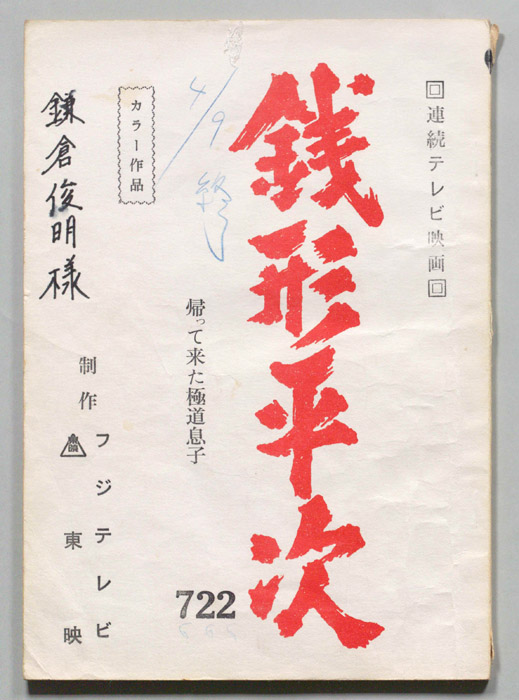 連続テレビ映画
銭形平次
4/9 終了
帰って来た極道息子
722
カラー作品
鎌倉俊明様
制作
フジテレビ
東映